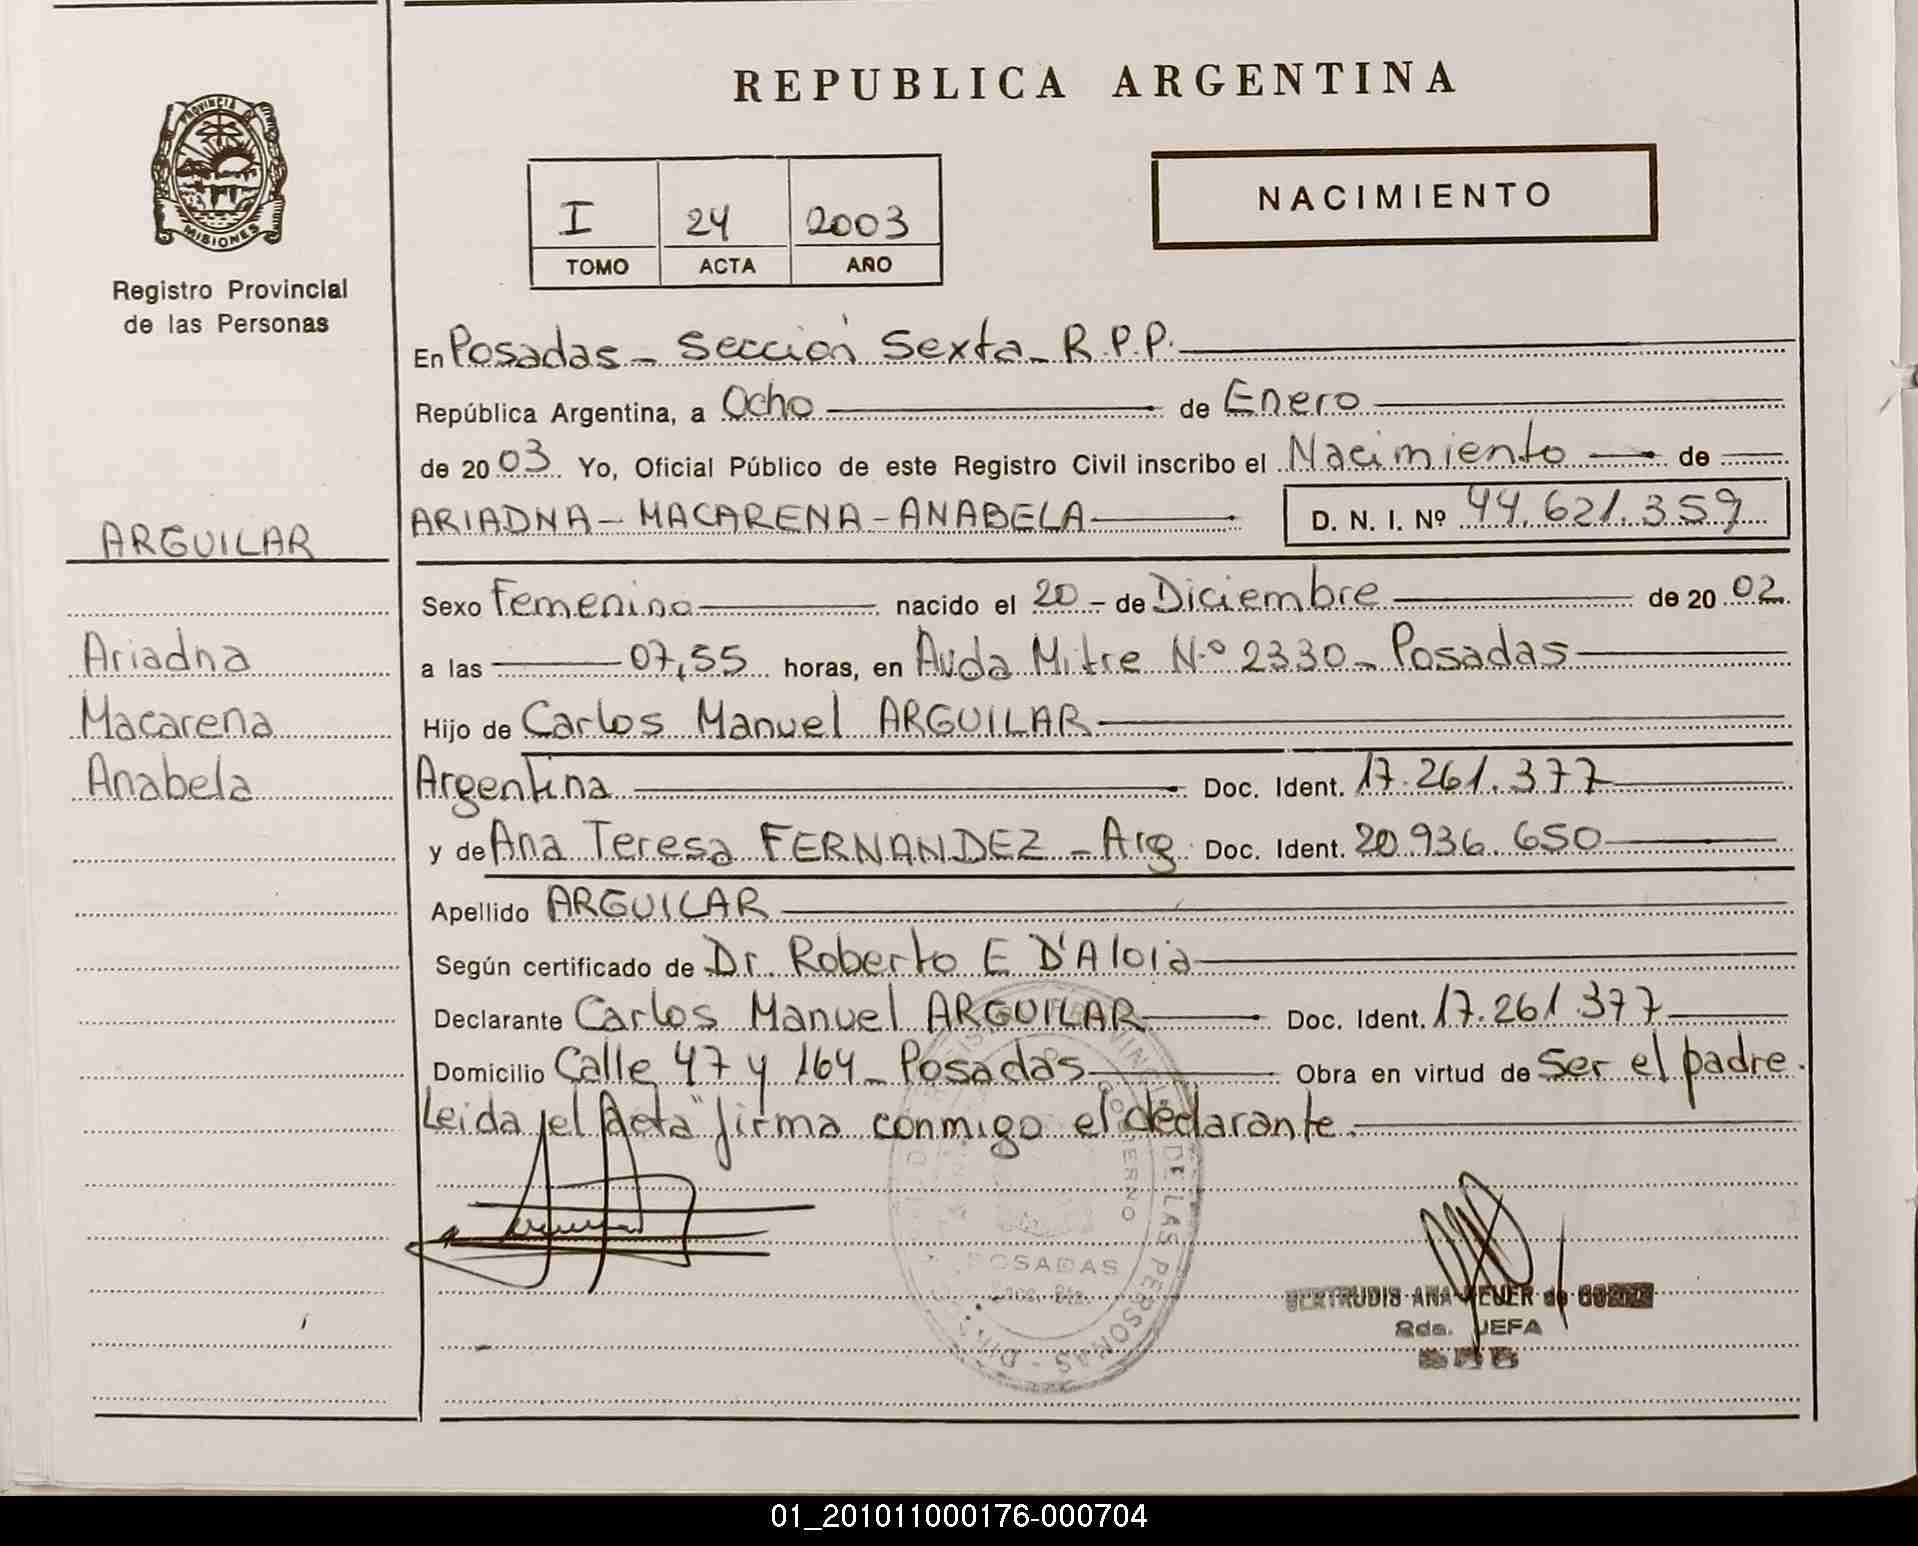 REPUBLICA ARGENTINA
PROVINCIA DE
MISIONES
Registro Provincial
de las Personas
NACIMIENTO
I 24 2003
TOMO ACTA AÑO
En Posadas - Sección Sexta - R.P.P.
República Argentina, a Ocho de Enero
de 20 03 Yo, Oficial Público de este Registro Civil inscribo el Nacimiento de
ARIADNA - MACARENA - ANABELA D. N. I. Nº 44.621.359
ARGUILAR
Ariadna
Macarena
Anabela
Sexo Femenino nacido el 20 - de Diciembre de 20 02.
a las 07,55 horas, en Avda Mitre Nº 2330 - Posadas
Hijo de Carlos Manuel ARGUILAR
Argentina Doc. Ident. 17.261.377
y de Ana Teresa FERNANDEZ - Arg. Doc. Ident. 20.936.650
Apellido ARGUILAR
Según certificado de Dr. Roberto E D'Aloia
Declarante Carlos Manuel ARGUILAR Doc. Ident. 17.261.377
Domicilio Calle 47 y 164 - Posadas Obra en virtud de Ser el padre.
Leida el Acta firma conmigo el declarante.
DE LAS PERSONAS
GOBIERNO
POSADAS
GERTRUDIS ANA de
JEFA
01_201011000176-000704